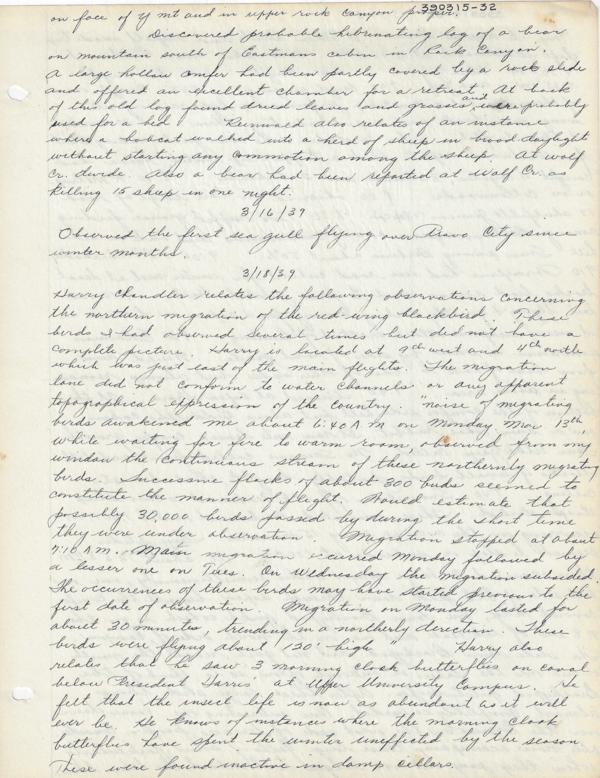 390315-32
on face of Y mt and in upper rock canyon proper.
Discovered probable hibernating log of a bear
on mountain south of Eastmans cabin in Rock Canyon.
A large hollow conifer had been partly covered by a rock slide
and offered an excellent chamber for a retreat. At back
of this old log found dried leaves and grasses and were probably
used for a bed Reinwald also relates of an instance
where a bobcat walked into a herd of sheep in broad daylight
without starting any commotion among the sheep. At wolf
Cr. divide. Also a bear had been reported at Wolf Cr. as
killing 15 sheep in one night.
3/16/39
Observed the first sea gull flying over Provo City since
winter months.
3/18/39
Harry Chandler relates the following observations concerning
the northern migration of the red-wing blackbird. These
birds I had observed several times but did not have a
complete picture. Harry is located at 9th west and 4th north
which was just east of the main flights. The migration
lane did not conform to water channels or any apparent
topographical expression of the country. "noise of migrating
birds awakened me about 6:40 A M on Monday, Mar 13th
While waiting for fire to warm room, observed from my
window the continuous stream of these northernly migrating
birds. Successive flocks of about 300 birds seemed to
constitute the manner of flight. Would estimate that
possibly 30,000 birds passed by during the short time
they were under observation. Migration stopped at about
7:10 A M. Main migration occurred Monday followed by
a lesser one on Tues. On Wednesday the migration subsided.
The occurrences of these birds may have started previous to the
first date of observation. Migration on Monday lasted for
about 30 minutes, trending in a northerly direction. These
birds were flying about 120' high" Harry also
relates that he saw 3 morning cloak butterflies on canal
below President Harris' at Upper University Campus. He
felt that the insect life is now as abundant as it will
ever be. He knows of instances where the morning cloak
butterflies have spent the winter uneffected by the season
These were found inactive in damp cellars.